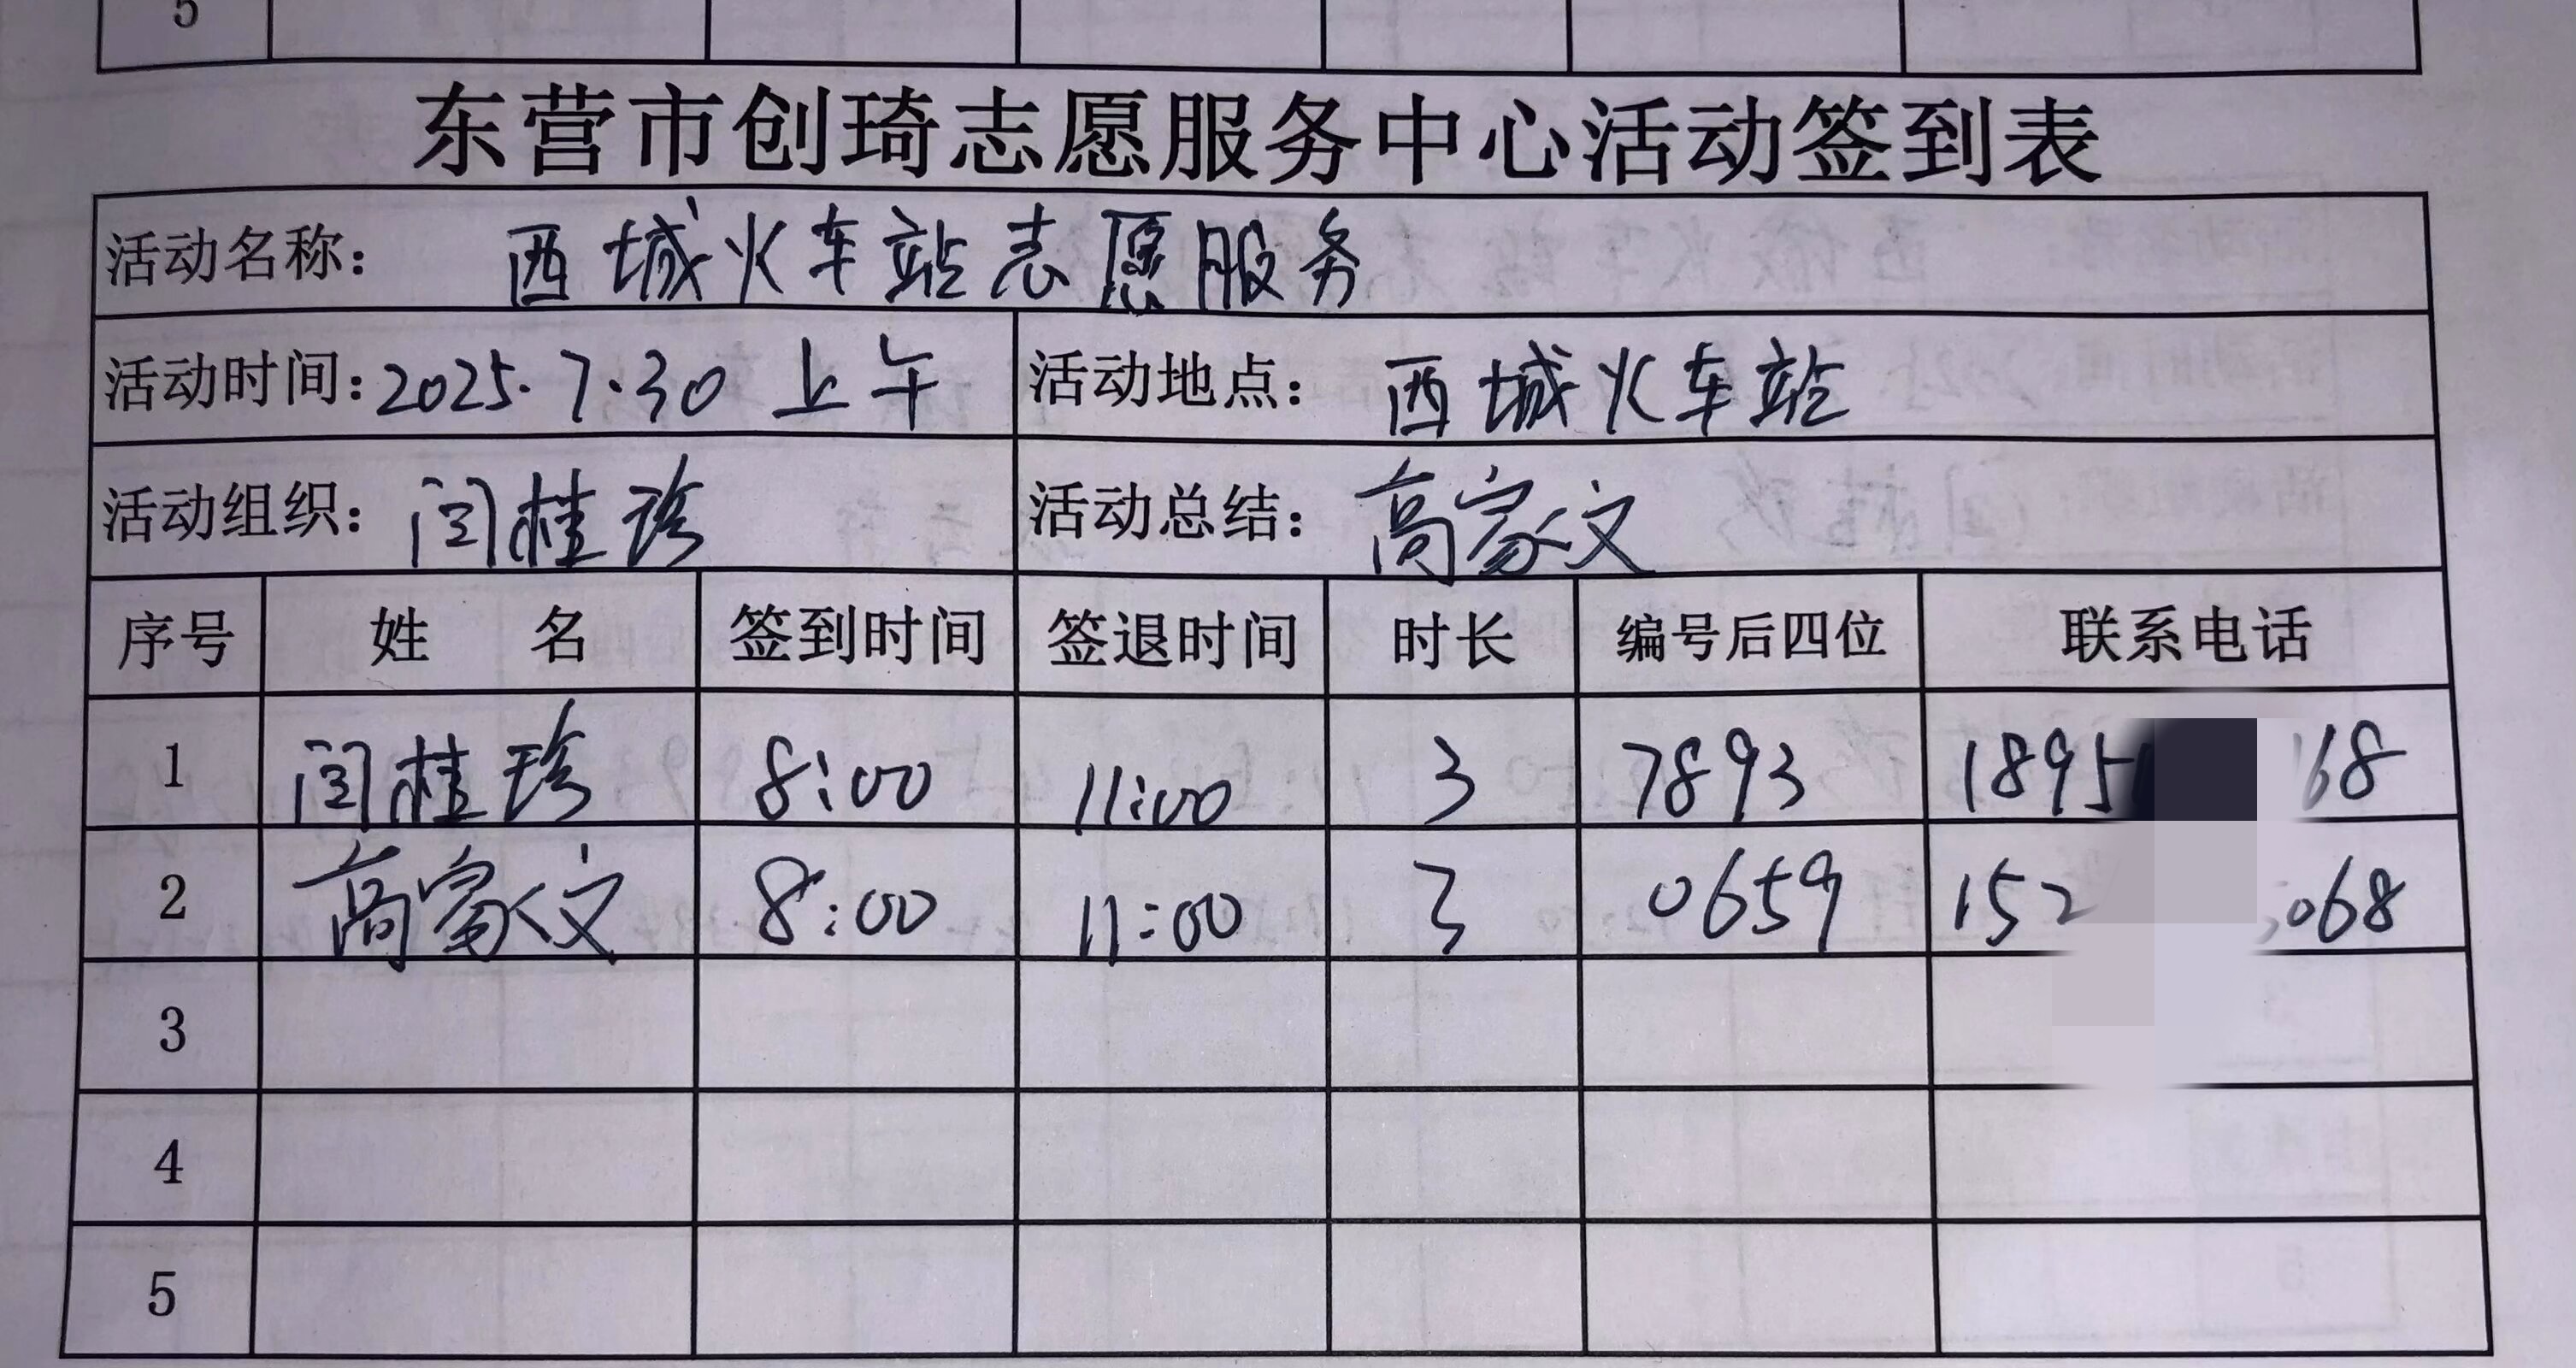 5
东营市创琦志愿服务中心活动签到表
活动名称： 西城火车站志愿服务
活动时间：2025.7.30 上午 活动地点： 西城火车站
活动组织： 闫桂珍 活动总结： 高家文
序号 姓 名 签到时间 签退时间 时长 编号后四位 联系电话
1 闫桂珍 8:00 11:00 3 7893 1895 68
2 高家文 8:00 11:00 3 0659 152 068
3
4
5